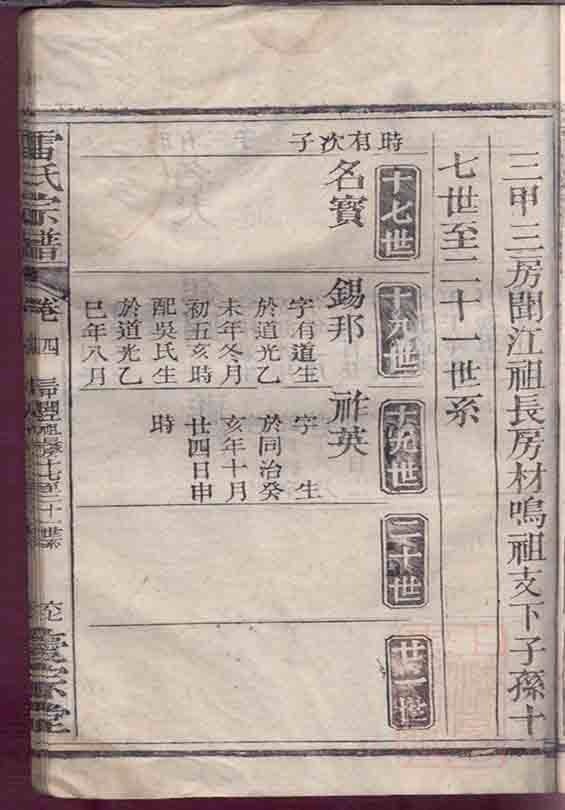 三甲三房聞江祖長房材鳴祖支下子孫十
七世至二十一世系
十七世
名寶
時有次子
十八世
錫邦
字有道生
於道光乙
未年冬月
初五亥時
配吳氏生
於道光乙
巳年八月
十九世
祚英
字　生
於同治癸
亥年十月
廿四日申
時
二十世
廿一世
雷氏宗譜
卷四